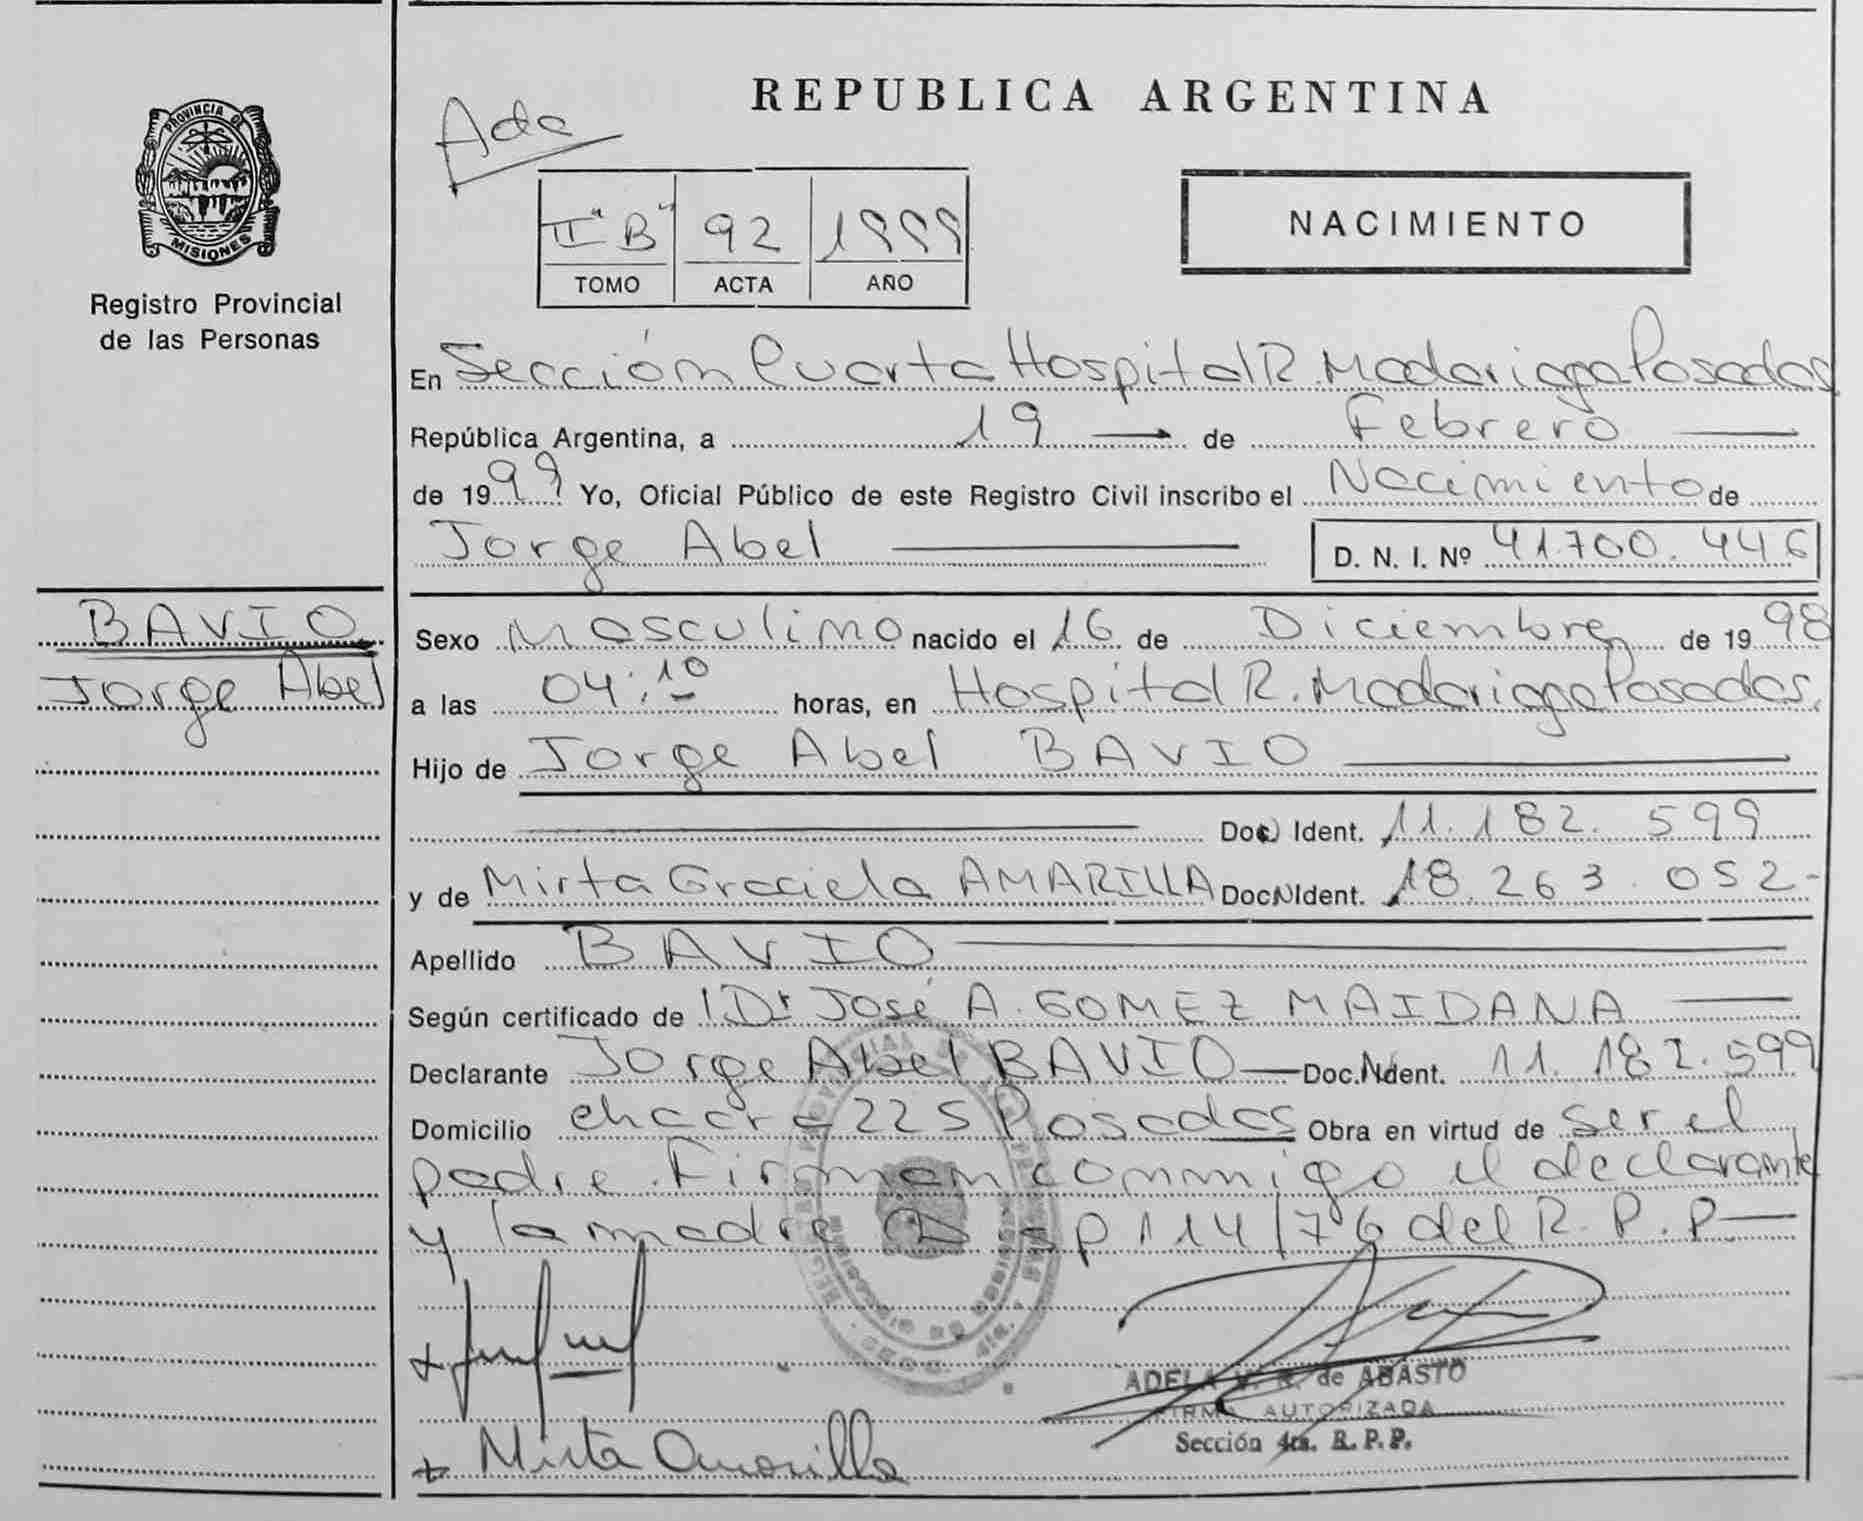 REPUBLICA ARGENTINA
PROVINCIA DE
MISIONES
Registro Provincial
de las Personas
II "B" 92 1999
TOMO ACTA AÑO
NACIMIENTO
En Sección Cuarta Hospital R. Madariaga Posadas
República Argentina, a 19 de Febrero
de 1999 Yo, Oficial Público de este Registro Civil inscribo el Nacimiento de
Jorge Abel D. N. I. Nº 41.700.446
BAVIO
Jorge Abel
Sexo Masculino nacido el 16 de Diciembre de 1998
a las 04:10 horas, en Hospital R. Madariaga Posadas.
Hijo de Jorge Abel BAVIO
Doc. Ident. 11.182.599
y de Mirta Graciela AMARILLA Doc. Ident. 18.263.052-
Apellido BAVIO
Según certificado de Dr José A. GOMEZ MAIDANA
Declarante Jorge Abel BAVIO Doc. Ident. 11.182.599
Domicilio chacra 225 Posadas Obra en virtud de ser el
padre. Firman conmigo el declarante
y la madre Disp 114/76 del R.P.P
ADELA V. R. de ABASTO
FIRMA AUTORIZADA
Sección 4ta. R. P. P.
Mirta Amarilla